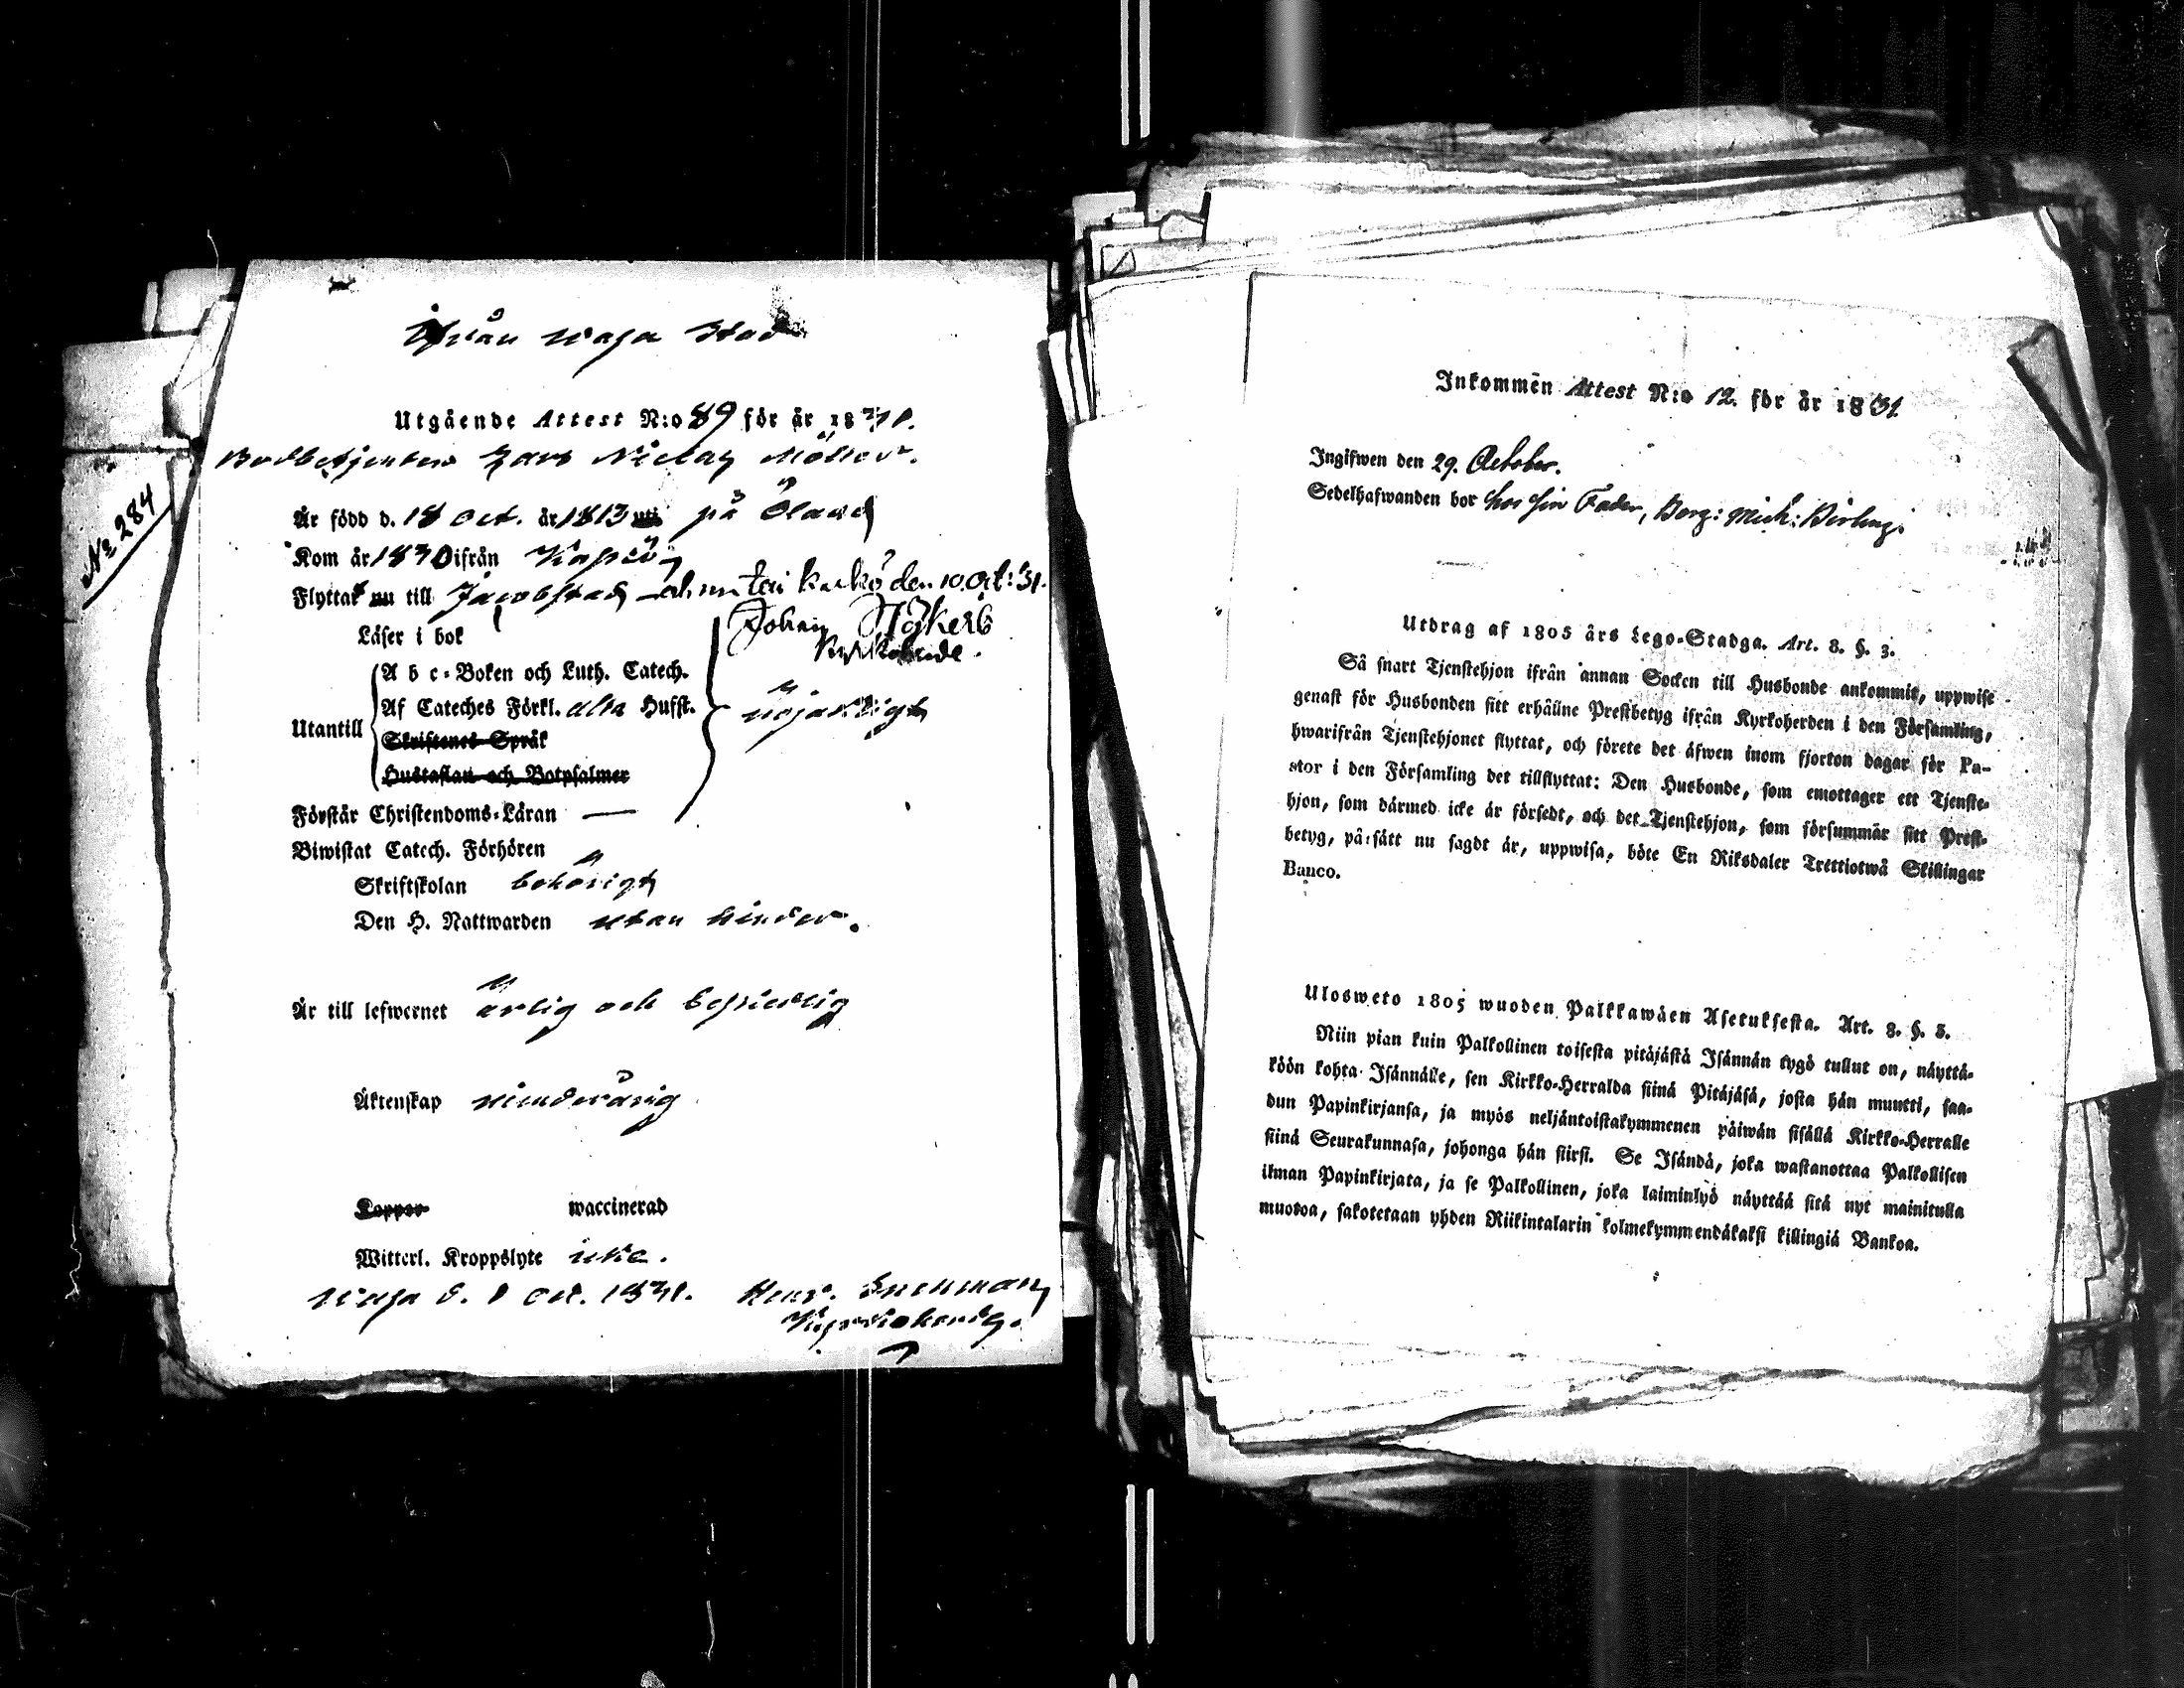 ifrån Wasa Stad
Utgående Attest N:o 89 för år 1831.
Bodbetjenten Lars Niclas Möller.
Är född d. 18 Oct. år 1813 på Öland
Kom år 1830 ifrån Kaskö
Flyttat nu till Jacobstad den 10 Oct: 31.
Johan
Kyrkoherde.
Läser i bok
A b c-Boken och Luth. Catech.
Af Cateches Förkl. alla Hufst.
nöjaktigt
Utantill
Skriftenes Språk
Hustaflan och Botpsalmer
Förstår Christendoms-Läran —
Biwistat Catech. Förhören
Skriftskolan behörigt
Den H. Nattwarden utan hinder.
Är till lefwernet ärlig och beskedlig
Äktenskap minderårig
Koppor waccinerad
Witterl. Kroppslyte icke.
Wasa d. 8 Oct. 1831. Henr. Snellman
Kyrkoherde.
No 284
Inkommen Attest N:o 12. för år 1831.
Ingifwen den 29. October.
Sedelhafwanden bor hos sin Fader, Borg: Mich:
Utdrag af 1805 års Lego-Stadga. Art. 8. §. 3.
Så snart Tjenstehjon ifrån annan Socken till Husbonde ankommit, uppwise
genast för Husbonden sitt erhållne Prestbetyg ifrån Kyrkoherden i den Församling,
hwarifrån Tjenstehjonet flyttat, och förete det äfwen inom fjorton dagar för Pa-
stor i den Församling det tillflyttat: Den Husbonde, som emottager ett Tjenste-
hjon, som därmed icke är försedt, och det Tjenstehjon, som försummar sitt Prest-
betyg, på sätt nu sagdt är, uppwisa, böte En Riksdaler Trettiotwå Skillingar
Banco.
Ulosweto 1805 wuoden Palkkawäen Asetuksesta. Art. 8. §. 3.
Niin pian kuin Palkollinen toisesta pitäjästä Isännän tygö tullut on, näyttä-
köön kohta Isännälle, sen Kirkko-Herralda siinä Pitäjäsä, josta hän muutti, saa-
dun Papinkirjansa, ja myös neljäntoistakymmenen päiwän sisällä Kirkko-Herralle
siinä Seurakunnasa, johonga hän siirsi. Se Isändä, joka wastanottaa Palkollisen
ilman Papinkirjata, ja se Palkollinen, joka laiminlyö näyttää sitä nyt mainitulla
muotoa, sakotetaan yhden Riikintalarin kolmekymmendäkaksi killingiä Bankoa.